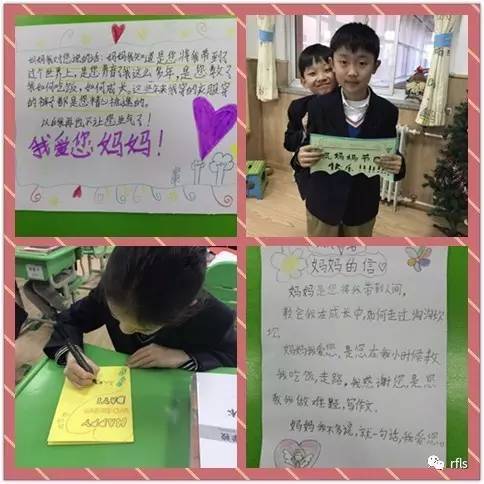 妈妈我对您说的话：妈妈我知道是您将我带到了
这个世界上，是您养育了我这么多年，是您教了
我如何吃饭，如何成长，这些年来我穿的衣服穿
的裤子都是您精心挑选的。
以后我再也不让您生气了！
我爱您妈妈！
妈妈节
快乐！！！！！
HAPPY
DAY!
妈妈的信
妈妈是您将我带到人间，
教会我在成长中，如何走过沟沟坎
坎。
妈妈我爱您，是您在我小时候教
我吃饭，走路。我感谢您，是您
教我做难题，写作文。
妈妈我不多说，就一句话，我爱您。
rfls